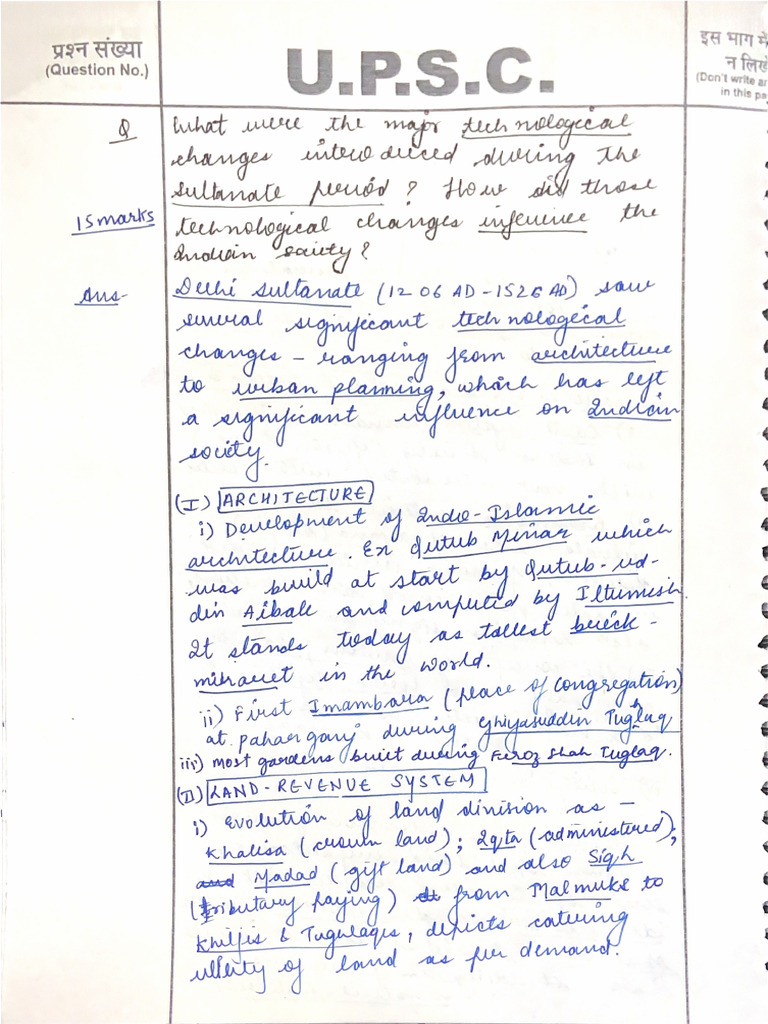 प्रश्न संख्या
(Question No.)
U.P.S.C.
इस भाग में
न लिखें
(Don't write an
in this pa
Q What were the major technological
changes introduced during the
Sultanate period? How did those
15 marks technological changes influence the
Indian society?
Ans- Delhi Sultanate (1206 AD-1526 AD) saw
several significant technological
changes - ranging from architecture
to urban planning, which has left
a significant influence on Indian
society.
(I) ARCHITECTURE
i) Development of Indo-Islamic
architecture. Ex Qutub Minar which
was build at start by Qutub-ud-
din Aibak and completed by Iltutmish.
It stands today as tallest brick-
minaret in the world.
ii) First Imambara (place of congregation)
at Paharganj during Ghiyasuddin Tughlaq
iii) most gardens built during Firoz Shah Tuglaq.
(II) LAND-REVENUE SYSTEM
i) Evolution of land division as -
Khalisa (crown land); Iqta (administered);
and Madad (gift land) and also Sigh
(tributary paying) from Malmuke to
Khiljis & Tugulaqs, depicts catering
of land as per demand.